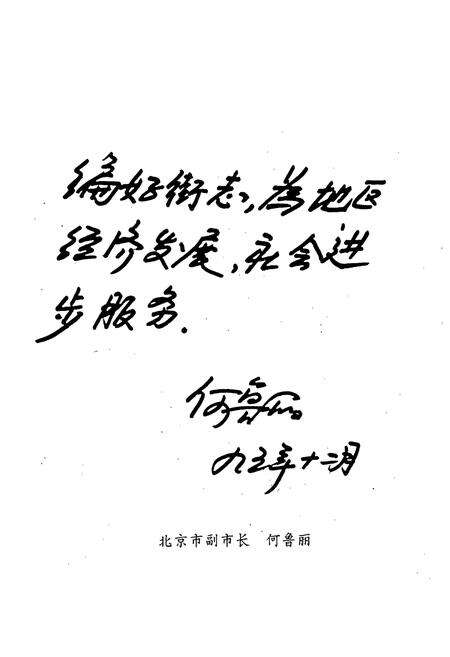 编好街志，为地区
经济发展，社会进
步服务.
何鲁丽
九五年十二月
北京市副市长 何鲁丽